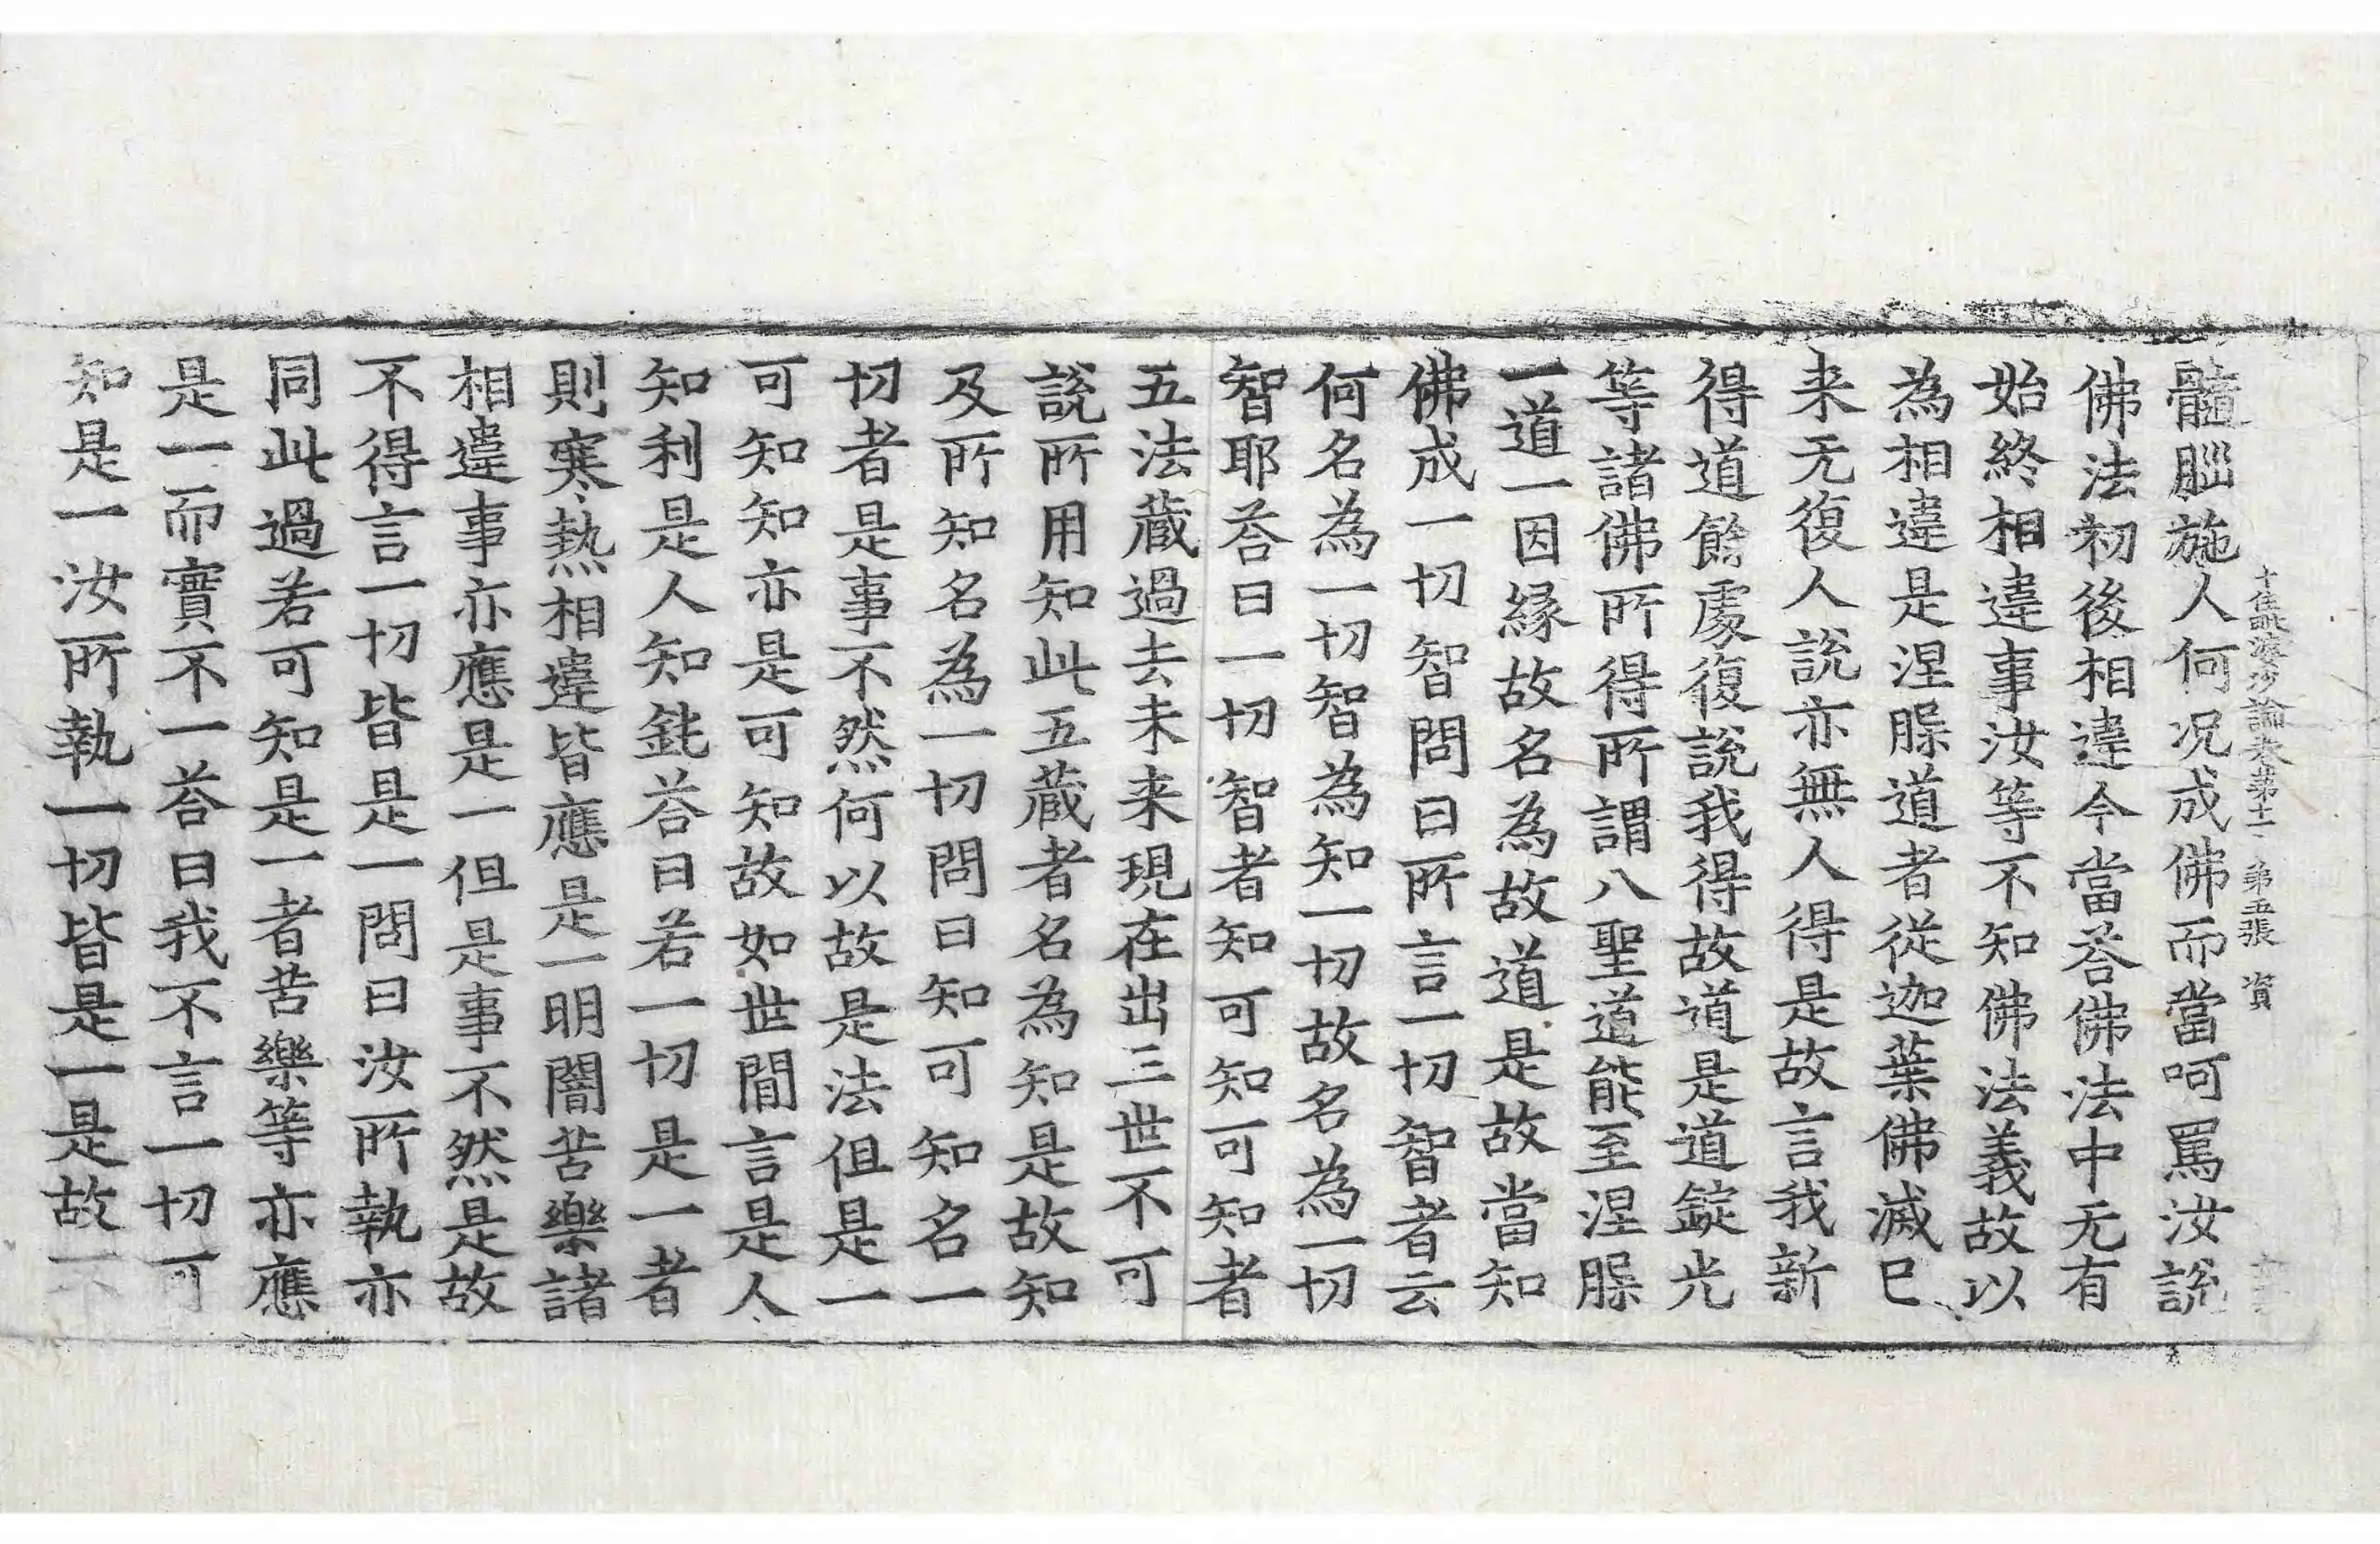 十住毗婆沙論卷第十一 第五張 資
髓腦施人何况成佛而當呵罵汝說
佛法初後相違今當荅佛法中无有
始終相違事汝等不知佛法義故以
為相違是涅槃道者從迦葉佛滅已
来无復人說亦無人得是故言我新
得道餘處復說我得故道是道錠光
等諸佛所得所謂八聖道能至涅槃
一道一因緣故名為故道是故當知
佛成一切智問曰所言一切智者云
何名為一切智為知一切故名為一切
智耶荅曰一切智者知可知可知者
五法藏過去未来現在出三世不可
說所用知此五藏者名為知是故知
及所知名為一切問曰知可知名一
切者是事不然何以故是法但是一
可知知亦是可知故如世間言是人
知利是人知鈍荅曰若一切是一者
則寒熱相違皆應是一明闇苦樂諸
相違事亦應是一但是事不然是故
不得言一切皆是一問曰汝所執亦
同此過若可知是一者苦樂等亦應
是一而實不一荅曰我不言一切可
知是一汝所執一切皆是一是故不